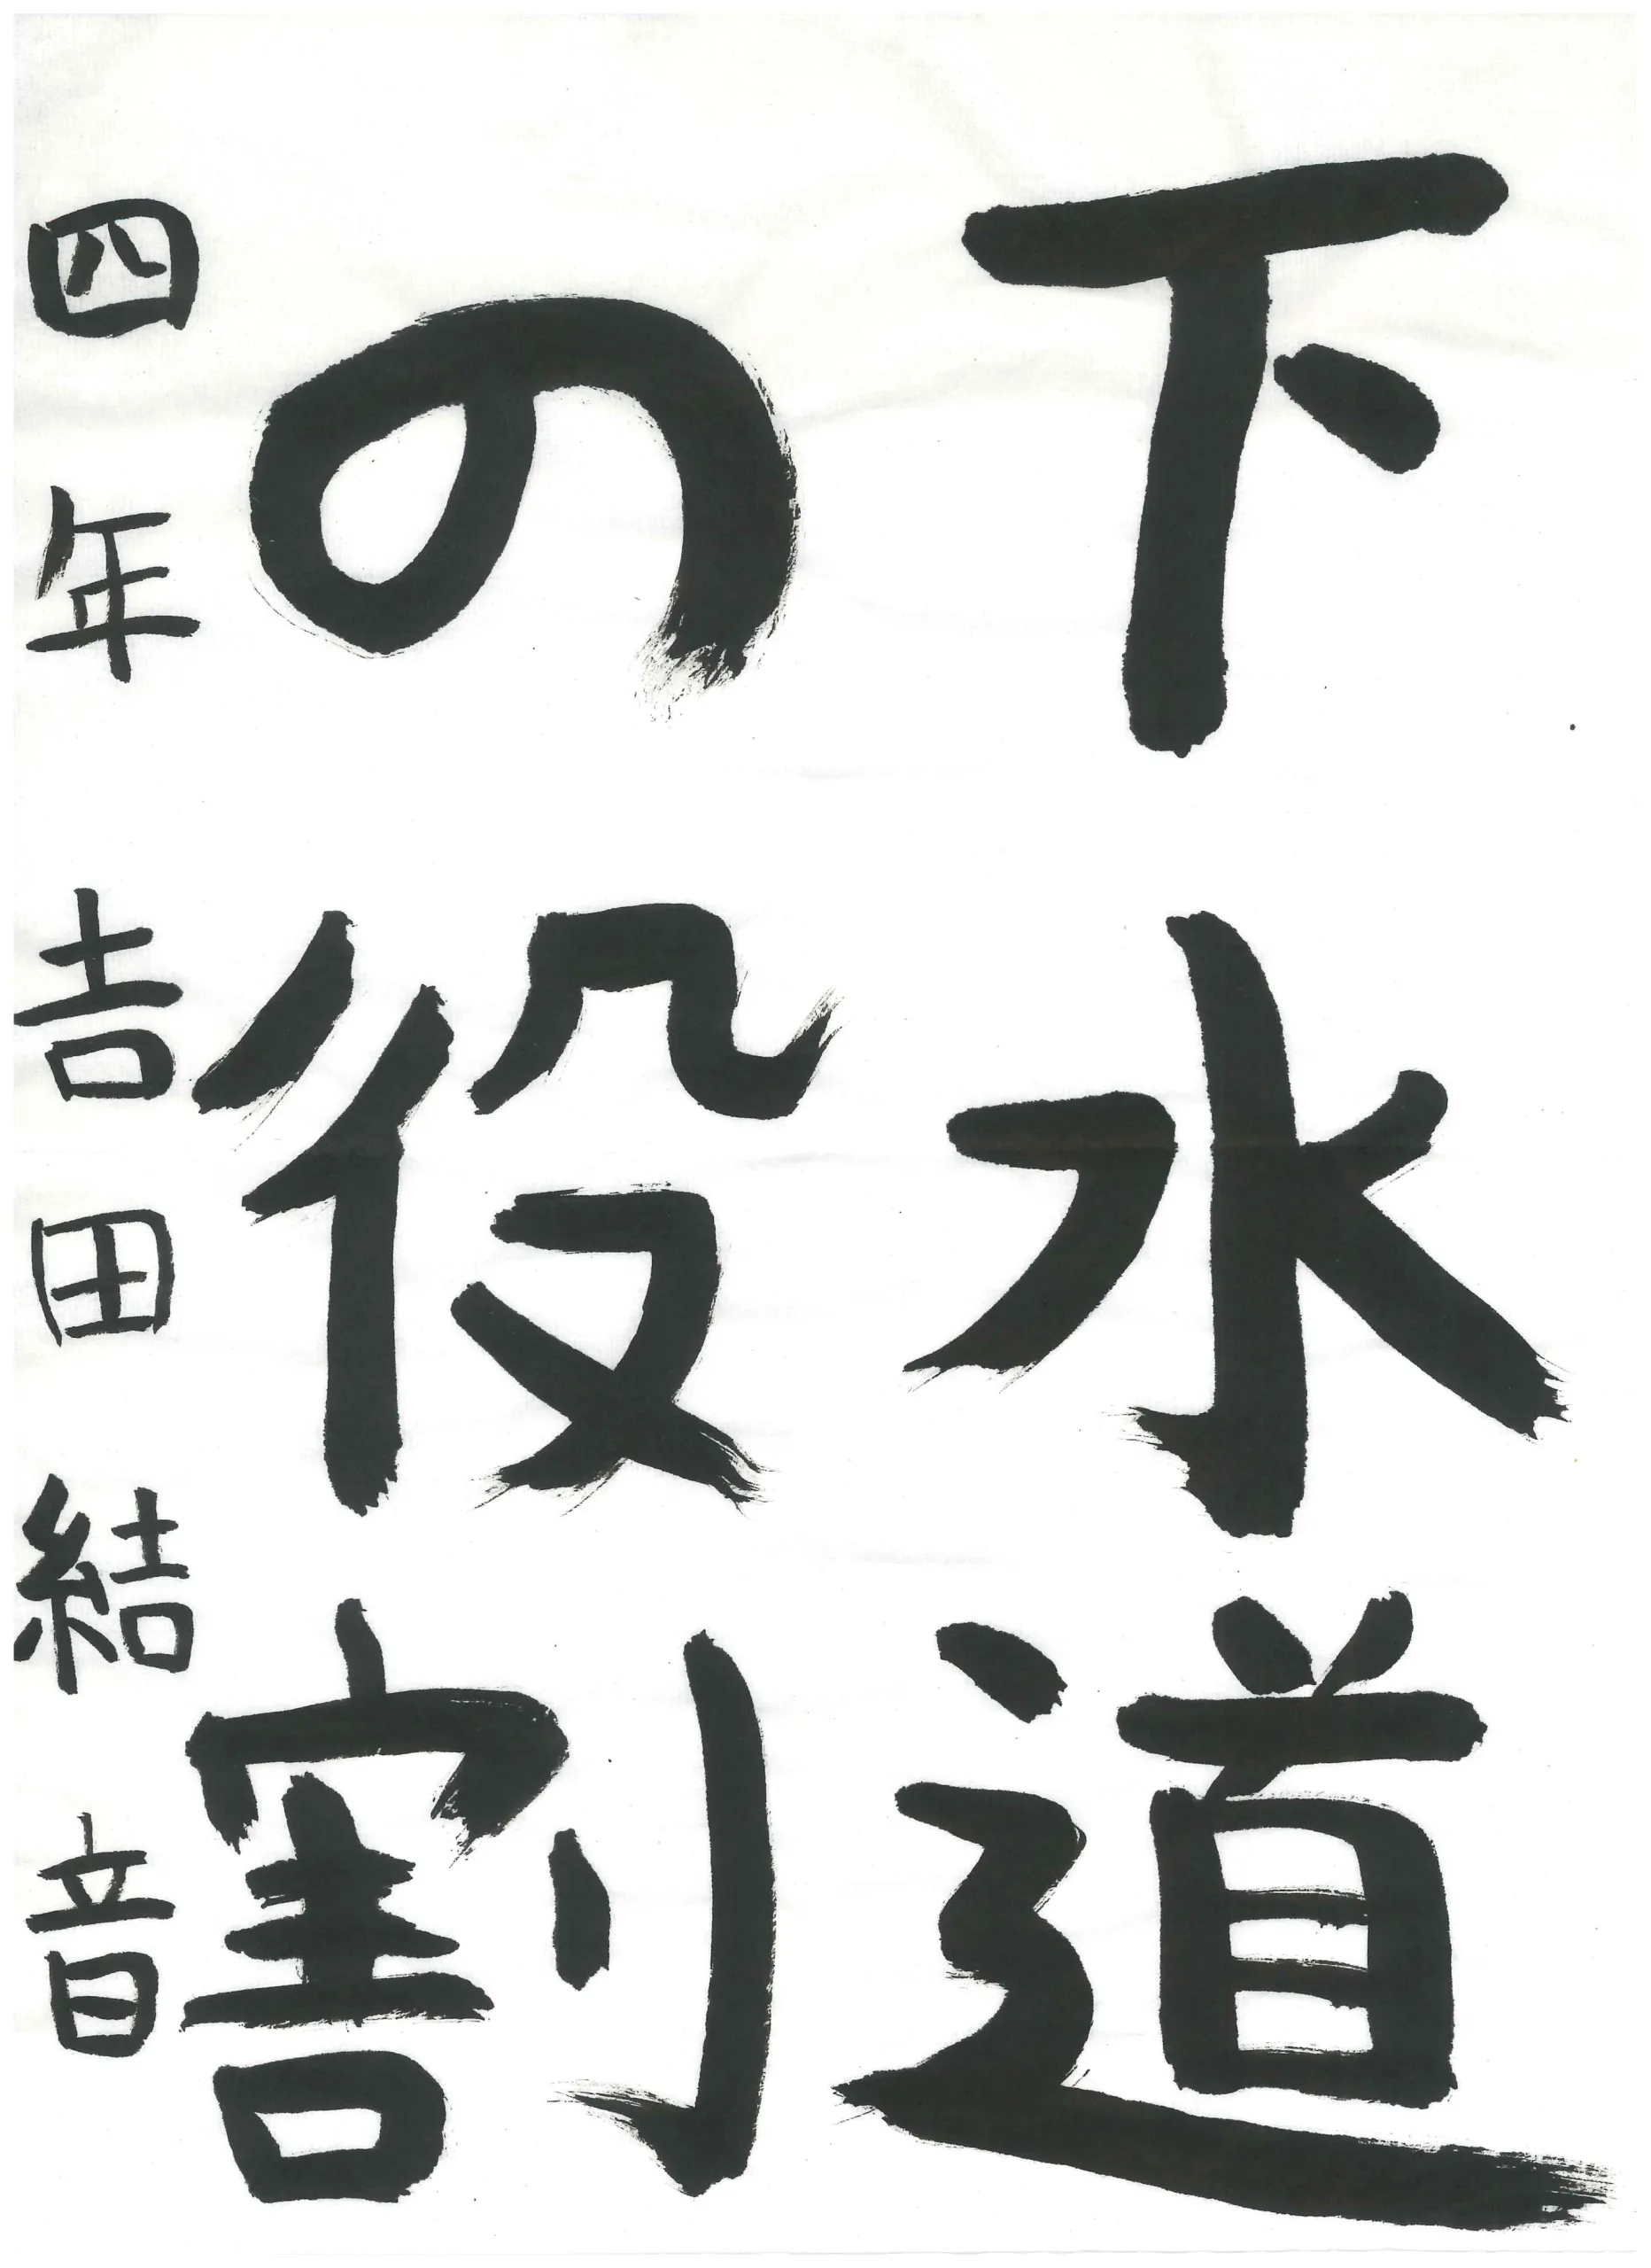 下水道
の役割
四年 吉田結音